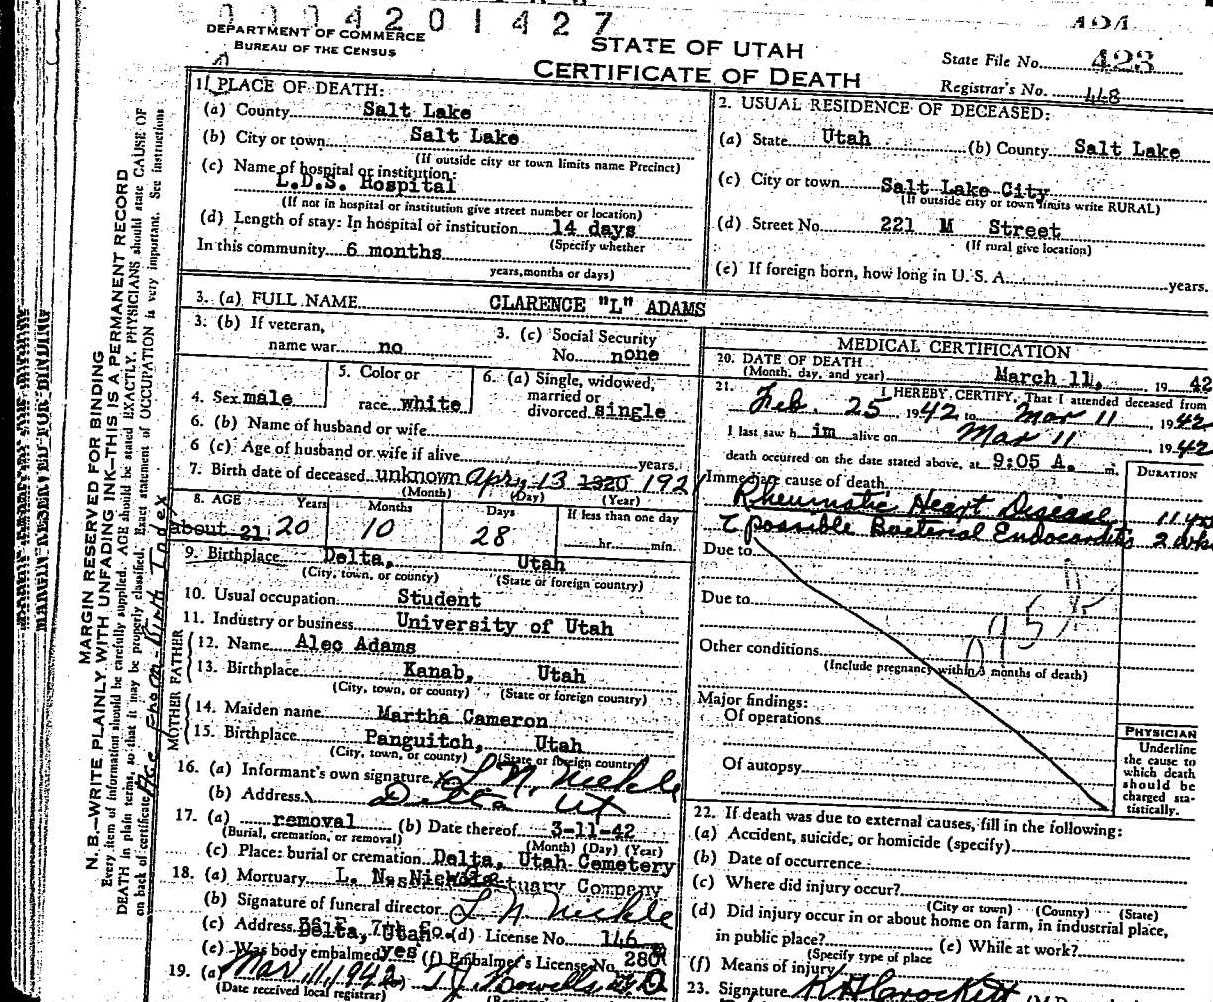 0004201427
DEPARTMENT OF COMMERCE
BUREAU OF THE CENSUS
STATE OF UTAH
CERTIFICATE OF DEATH
State File No. 423
Registrar's No. 448
1. PLACE OF DEATH:
(a) County Salt Lake
(b) City or town Salt Lake
(If outside city or town limits name Precinct)
(c) Name of hospital or institution:
L.D.S. Hospital
(If not in hospital or institution give street number or location)
(d) Length of stay: In hospital or institution 14 days
(Specify whether
In this community 6 months
years, months or days)
2. USUAL RESIDENCE OF DECEASED:
(a) State Utah (b) County Salt Lake
(c) City or town Salt Lake City
(If outside city or town limits write RURAL)
(d) Street No. 221 M Street
(If rural give location)
(e) If foreign born, how long in U. S. A. years.
3. (a) FULL NAME CLARENCE "L" ADAMS
3. (b) If veteran,
name war no
3. (c) Social Security
No. none
4. Sex male
5. Color or
race white
6. (a) Single, widowed,
married or
divorced single
6. (b) Name of husband or wife
6 (c) Age of husband or wife if alive years.
7. Birth date of deceased unknown Apr. 13 1920 1921
(Month) (Day) (Year)
8. AGE Years Months Days If less than one day
about 21 20 10 28 hr. min.
9. Birthplace Delta, Utah
(City, town, or county) (State or foreign country)
10. Usual occupation Student
11. Industry or business University of Utah
FATHER
12. Name Alec Adams
13. Birthplace Kanab, Utah
(City, town, or county) (State or foreign country)
MOTHER
14. Maiden name Martha Cameron
15. Birthplace Panguitch, Utah
(City, town, or county) (State or foreign country)
16. (a) Informant's own signature L N. Nickle
(b) Address Delta Ut
17. (a) removal (b) Date thereof 3-11-42
(Burial, cremation, or removal) (Month) (Day) (Year)
(c) Place: burial or cremation Delta, Utah Cemetery
18. (a) Mortuary L. N. Nickle Mortuary Company
(b) Signature of funeral director L N Nickle
(c) Address Delta, Utah (d) License No. 146
(e) Was body embalmed yes (f) Embalmer's License No. 280
19. (a) Mar 11, 1942
(Date received local registrar)
MEDICAL CERTIFICATION
20. DATE OF DEATH
(Month, day, and year) March 11, 1942
21. I HEREBY CERTIFY, That I attended deceased from
Feb. 25 1942 to Mar 11 1942
I last saw h im alive on Mar 11 1942
death occurred on the date stated above, at 9:05 A. m.
DURATION
Immediate cause of death
Rheumatic Heart Disease 11 yrs
c possible Bacterial Endocarditis 2 wks
Due to
Due to
Other conditions
(Include pregnancy within 3 months of death)
Major findings:
Of operations
Of autopsy
PHYSICIAN
Underline
the cause to
which death
should be
charged sta-
tistically.
22. If death was due to external causes, fill in the following:
(a) Accident, suicide, or homicide (specify)
(b) Date of occurrence
(c) Where did injury occur?
(City or town) (County) (State)
(d) Did injury occur in or about home on farm, in industrial place,
in public place? (e) While at work?
(Specify type of place
(f) Means of injury
23. Signature
MARGIN RESERVED FOR BINDING
N. B.—WRITE PLAINLY, WITH UNFADING INK—THIS IS A PERMANENT RECORD
Every item of information should be carefully supplied. AGE should be stated EXACTLY. PHYSICIANS should state CAUSE OF
DEATH in plain terms, so that it may be properly classified. Exact statement of OCCUPATION is very important. See instructions
on back of certificate.
Age from Birth Index